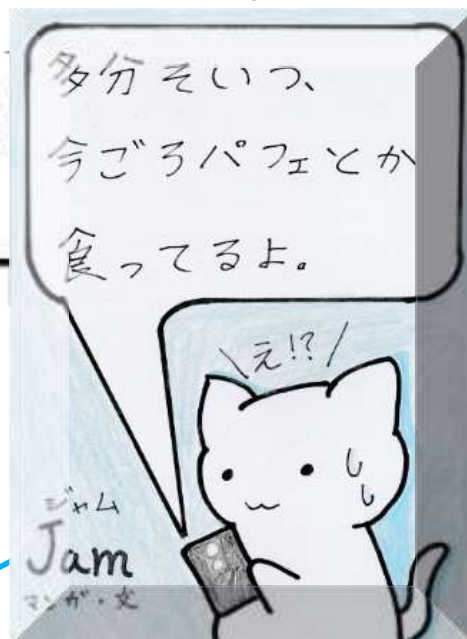 多分そいつ、
今ごろパフェとか
食ってるよ。
\え!?/
ジャム
Jam
マンガ・文